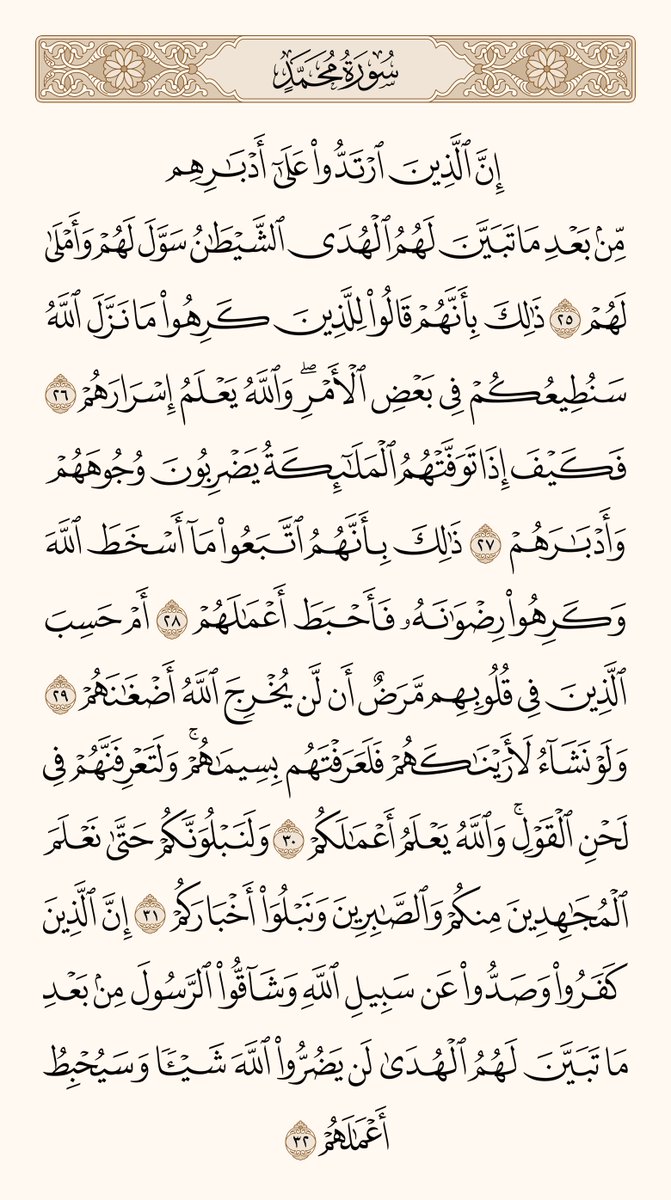 سُورَةُ مُحَمَّدٍ
إِنَّ ٱلَّذِينَ ٱرْتَدُّوا۟ عَلَىٰٓ أَدْبَـٰرِهِم
مِّنۢ بَعْدِ مَا تَبَيَّنَ لَهُمُ ٱلْهُدَى ٱلشَّيْطَـٰنُ سَوَّلَ لَهُمْ وَأَمْلَىٰ
لَهُمْ ٢٥ ذَٰلِكَ بِأَنَّهُمْ قَالُوا۟ لِلَّذِينَ كَرِهُوا۟ مَا نَزَّلَ ٱللَّهُ
سَنُطِيعُكُمْ فِى بَعْضِ ٱلْأَمْرِ ۖ وَٱللَّهُ يَعْلَمُ إِسْرَارَهُمْ ٢٦
فَكَيْفَ إِذَا تَوَفَّتْهُمُ ٱلْمَلَـٰٓئِكَةُ يَضْرِبُونَ وُجُوهَهُمْ
وَأَدْبَـٰرَهُمْ ٢٧ ذَٰلِكَ بِأَنَّهُمُ ٱتَّبَعُوا۟ مَآ أَسْخَطَ ٱللَّهَ
وَكَرِهُوا۟ رِضْوَٰنَهُۥ فَأَحْبَطَ أَعْمَـٰلَهُمْ ٢٨ أَمْ حَسِبَ
ٱلَّذِينَ فِى قُلُوبِهِم مَّرَضٌ أَن لَّن يُخْرِجَ ٱللَّهُ أَضْغَـٰنَهُمْ ٢٩
وَلَوْ نَشَآءُ لَأَرَيْنَـٰكَهُمْ فَلَعَرَفْتَهُم بِسِيمَـٰهُمْ ۚ وَلَتَعْرِفَنَّهُمْ فِى
لَحْنِ ٱلْقَوْلِ ۚ وَٱللَّهُ يَعْلَمُ أَعْمَـٰلَكُمْ ٣٠ وَلَنَبْلُوَنَّكُمْ حَتَّىٰ نَعْلَمَ
ٱلْمُجَـٰهِدِينَ مِنكُمْ وَٱلصَّـٰبِرِينَ وَنَبْلُوَا۟ أَخْبَارَكُمْ ٣١ إِنَّ ٱلَّذِينَ
كَفَرُوا۟ وَصَدُّوا۟ عَن سَبِيلِ ٱللَّهِ وَشَآقُّوا۟ ٱلرَّسُولَ مِنۢ بَعْدِ
مَا تَبَيَّنَ لَهُمُ ٱلْهُدَىٰ لَن يَضُرُّوا۟ ٱللَّهَ شَيْـًٔا وَسَيُحْبِطُ
أَعْمَـٰلَهُمْ ٣٢